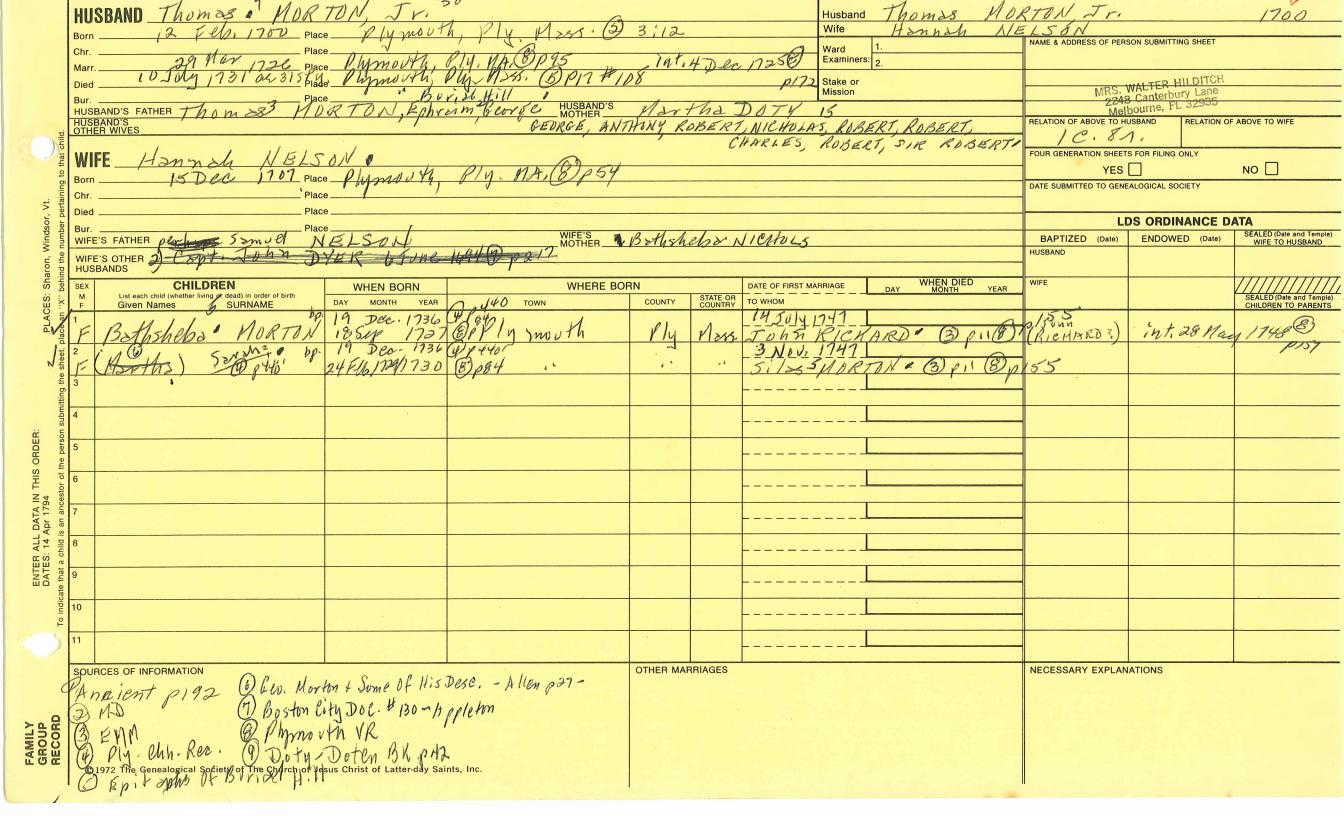 HUSBAND Thomas MORTON, Jr.
Husband Thomas MORTON Jr. 1700
Wife Hannah NELSON
Born 12 Feb. 1700 Place Plymouth, Ply. Mass. ② 3:12
Chr. Place
Marr. 29 Mar 1726 Place Plymouth, Ply. MA. ⑧ p95 int. 4 Dec 1725 ⑧ p172
Died 10 July 1731 ae 31st y Place Plymouth, Ply. Mass. ⑤ p17 #108
Bur. Place " Burial Hill
Ward Examiners: 1.
2.
Stake or Mission
NAME & ADDRESS OF PERSON SUBMITTING SHEET
MRS. WALTER HILDITCH
2248 Canterbury Lane
Melbourne, FL 32935
HUSBAND'S FATHER Thomas³ MORTON, Ephraim², George¹
HUSBAND'S MOTHER Martha DOTY 15
HUSBAND'S OTHER WIVES GEORGE, ANTHONY, ROBERT, NICHOLAS, ROBERT, ROBERT,
CHARLES, ROBERT, SIR ROBERT
RELATION OF ABOVE TO HUSBAND
1C. 8r.
RELATION OF ABOVE TO WIFE
FOUR GENERATION SHEETS FOR FILING ONLY
YES NO
DATE SUBMITTED TO GENEALOGICAL SOCIETY
WIFE Hannah NELSON
Born 15 Dec 1707 Place Plymouth, Ply. MA. ⑧ p54
Chr. Place
Died Place
Bur. Place
WIFE'S FATHER perhaps Samuel NELSON
WIFE'S MOTHER Bathsheba NICHOLS
WIFE'S OTHER HUSBANDS 2) Capt. John DYER 6 June
LDS ORDINANCE DATA
BAPTIZED (Date) ENDOWED (Date) SEALED (Date and Temple) WIFE TO HUSBAND
HUSBAND
WIFE
SEALED (Date and Temple) CHILDREN TO PARENTS
SEX M. F.
CHILDREN
List each child (whether living or dead) in order of birth
Given Names SURNAME
WHEN BORN
DAY MONTH YEAR
WHERE BORN
TOWN COUNTY STATE OR COUNTRY
DATE OF FIRST MARRIAGE
TO WHOM
WHEN DIED
DAY MONTH YEAR
1 bp. 19 Dec. 1736 ④ p440 14 July 1747
F Bathsheba MORTON 18 Sep 1727 ⑧ p84 Plymouth Ply Mass John RICHARD ③ p11 ⑧ p155 (John RICHARD?) int. 28 May 1748 ⑧ p157
2 bp. 19 Dec. 1736 ④ p440 3 Nov. 1747
F (Martha) ⑥ Sarah ④ p440 24 Feb, 1729/1730 ⑧ p84 " " " Silas MORTON ③ p11 ⑧ p155
3
4
5
6
7
8
9
10
11
SOURCES OF INFORMATION
① Ancient p192
② MD
③ EMM
④ Ply. Chh. Rec.
⑤ Epitaphs Of Burial Hill
⑥ Geo. Morton & Some Of His Desc. - Allen p27-
⑦ Boston City Doc. #130 - Appleton
⑧ Plymouth VR
⑨ Doty-Doten BK p42
©1972 The Genealogical Society of The Church of Jesus Christ of Latter-day Saints, Inc.
OTHER MARRIAGES
NECESSARY EXPLANATIONS
FAMILY GROUP RECORD
ENTER ALL DATA IN THIS ORDER:
DATES: 14 Apr 1794
PLACES: Sharon, Windsor, Vt.
To indicate that a child is an ancestor of the person submitting the sheet, place an "X" behind the number pertaining to that child.